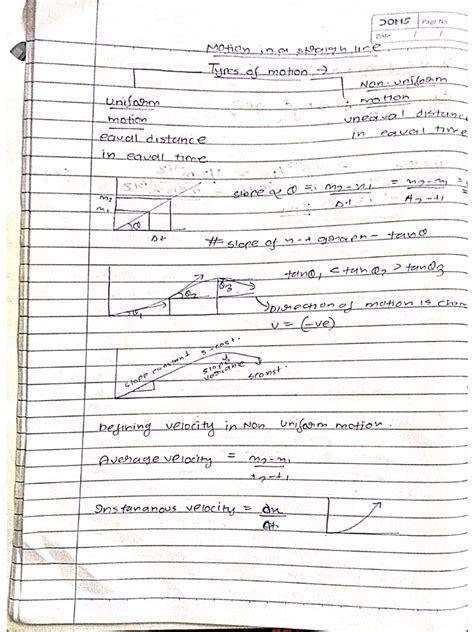 DOMS
Page No.
Date / /
Motion in a straigh line
Types of motion →
Uniform motion
eaual distance
in eaual time
Non-uniform motion
uneaual distance
in eaual time
x2
x1
θ
Δt
slope of θ = x2-x1 / Δt = x2-x1 / t2-t1 =
# slope of x-t graph - tanθ
θ1
θ2
θ3
tanθ1 < tanθ2 > tanθ3
Direction of motion is chan
v = (-ve)
slope constant
s-cost.
slope variable
sconst.
Defining velocity in Non Uniform motion.
Average velocity = x2-x1 / t2-t1
Instananous velocity = dx / dt